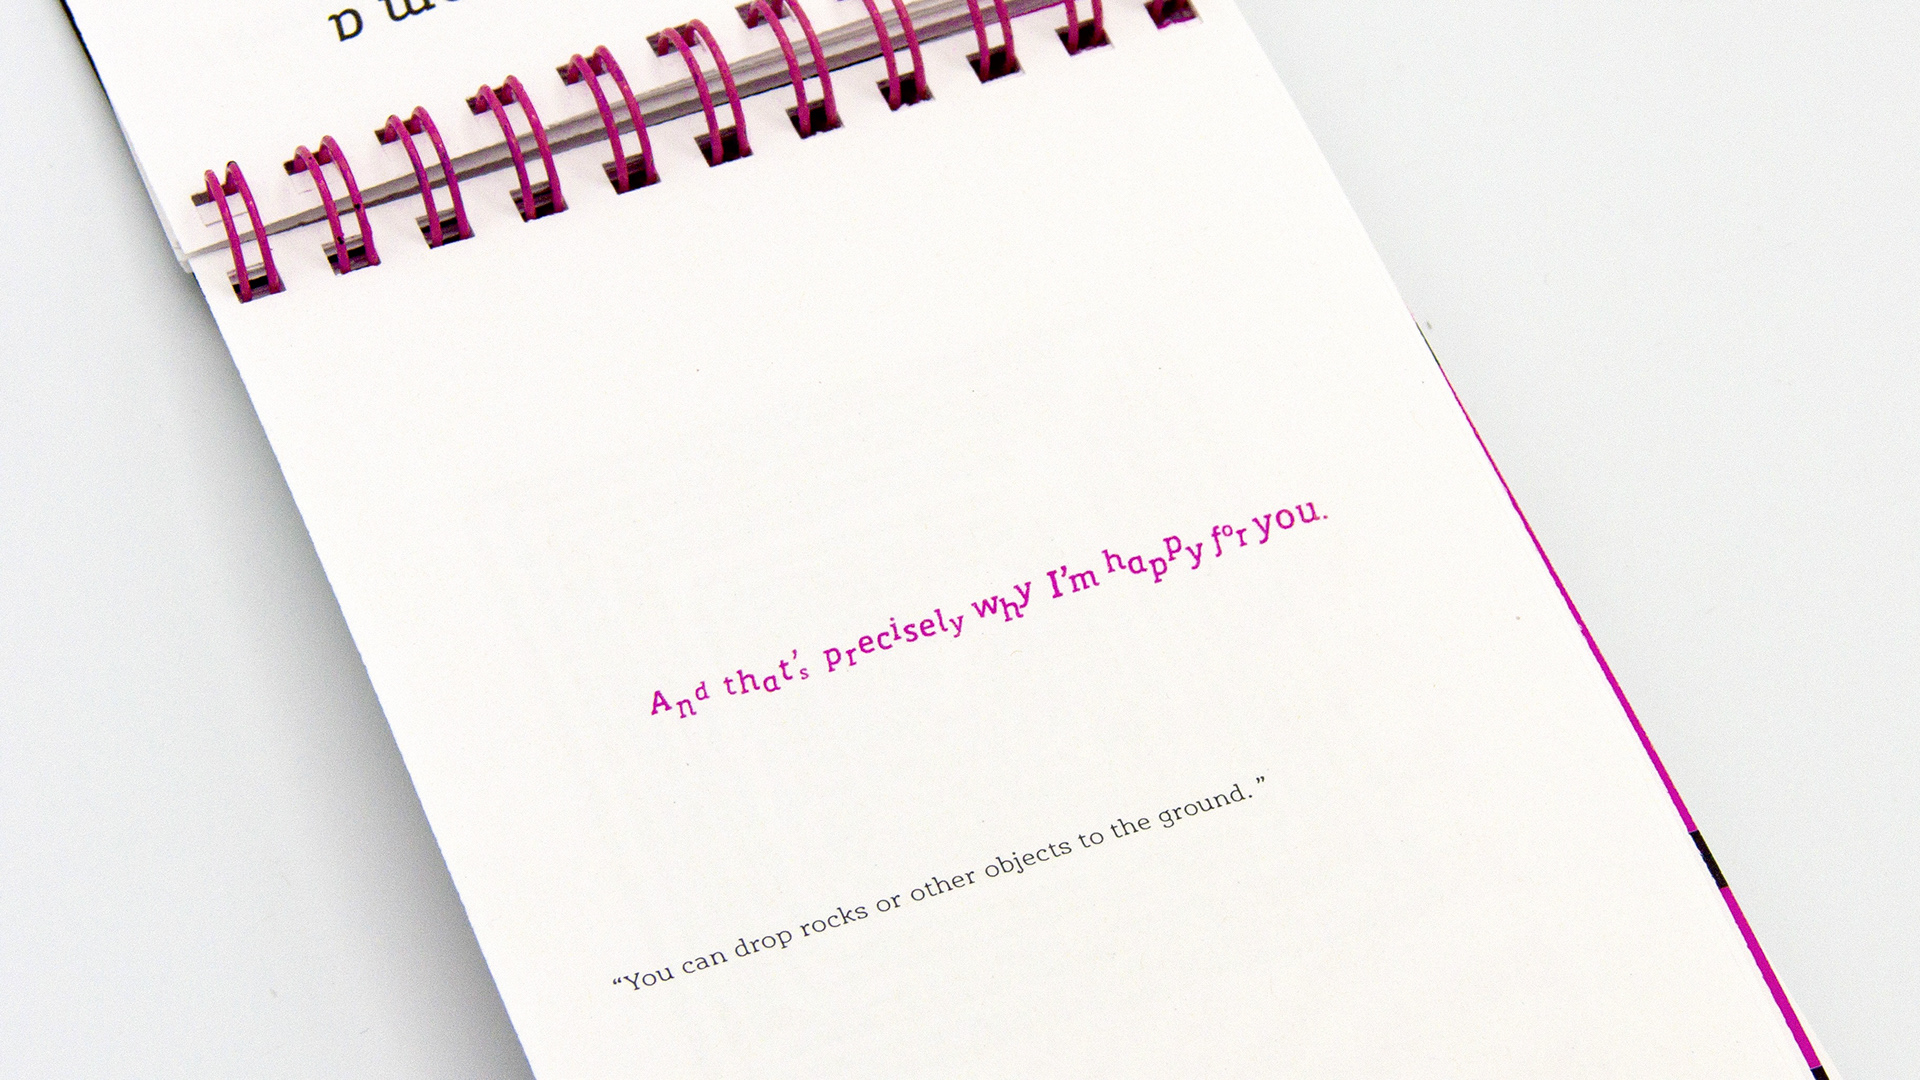 And that's precisely why I'm happy for you.
“You can drop rocks or other objects to the ground.”